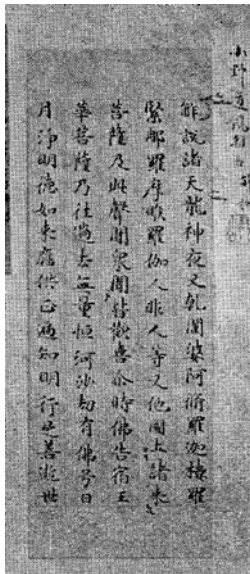 小野道風
解說諸天龍神夜叉乾闥婆阿脩羅迦樓羅
緊那羅摩睺羅伽人非人等又他國土諸来
菩薩及此聲聞衆聞皆歡喜尒時佛告宿王
華菩薩乃往過去無量恒河沙劫有佛号日
月淨明德如来應供正遍知明行足善逝世